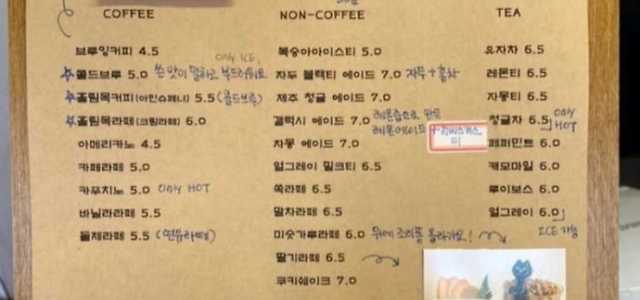 COFFEE
브루잉커피 4.5
ONLY ICE,
☆콜드브루 5.0 쓴맛이 덜하고 부드러워요
☆홀림목커피(아인슈페너) 5.5 (콜드브루)
☆홀림목라떼(크림라떼) 6.0
아메리카노 4.5
카페라떼 5.0
카푸치노 5.0 ONLY HOT
바닐라라떼 5.5
돌체라떼 5.5 (연유라떼)
NON-COFFEE
복숭아아이스티 5.0
자두 블랙티 에이드 7.0 자두+홍차
제주 청귤 에이드 7.0
갤럭시 에이드 7.0 레몬즙으로 만든
레몬에이드+
자몽 에이드 7.0
얼그레이 밀크티 6.5
쑥라떼 6.5
말차라떼 6.5
미숫가루라떼 6.0 위에 조리퐁 올라가요!
딸기라떼 6.5
쿠키쉐이크 7.0
TEA
유자차 6.5
레몬티 6.5
자몽티 6.5
청귤차 6.5 ONLY HOT
페퍼민트 6.0
캐모마일 6.0
루이보스 6.0
얼그레이 6.0
ICE 가능